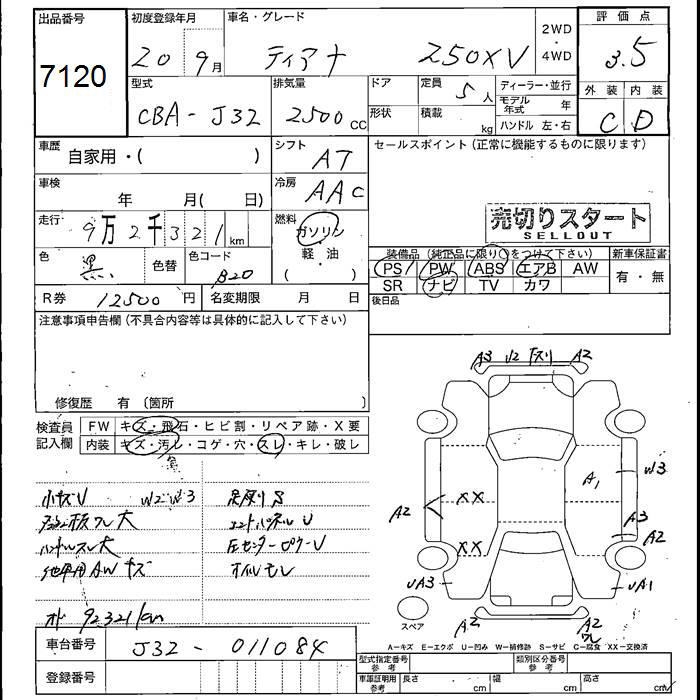 出品番号 初度登録年月 車名・グレード 2WD・4WD 評価点
7120 20 9月 ティアナ 250XV 3.5
型式 排気量 ドア 定員 ディーラー・並行 外装 内装
CBA-J32 2500cc 5人 モデル年式 年 C D
形状 積載 kg ハンドル 左・右
車歴 自家用・( ) シフト AT セールスポイント(正常に機能するものに限ります)
車検 年 月( 日) 冷房 AAC
走行 9万2千321km 燃料 ガソリン 軽・油 ( ) 売切りスタート
SELLOUT
色 黒 色替 色コード B20 装備品(純正品に限り○をつけて下さい) 新車保証書
PS PW ABS エアB AW 有・無
SR ナビ TV カワ
R券 12500円 名変期限 月 日 後日品
注意事項申告欄(不具合内容等は具体的に記入して下さい)
修復歴 有 〔箇所 〕
検査員記入欄 FW キズ・飛石・ヒビ割・リペア跡・X要
内装 キズ・汚レ・コゲ・穴・スレ・キレ・破レ
小キズU W2 W3
ハンドルスレ大
オイルモレ
オド 92321km
A3 U2 A2
A1 W3
A2 XX A3 A2
XX
UA3 UA1
スペア A2 A2
A-キズ E-エクボ U-凹み W-補修跡 S-サビ C-腐食 XX-交換済
車台番号 J32-011084
登録番号
型式指定番号 参考 類別区分番号 参考
車庫証明用 参考 長さ cm 幅 cm 高さ cm